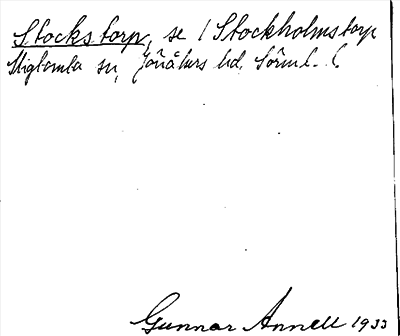 Stockstorp, se / Stockholmstorp
sn, Jönåkers hd, Sörml.
Gunnar Annell 1933